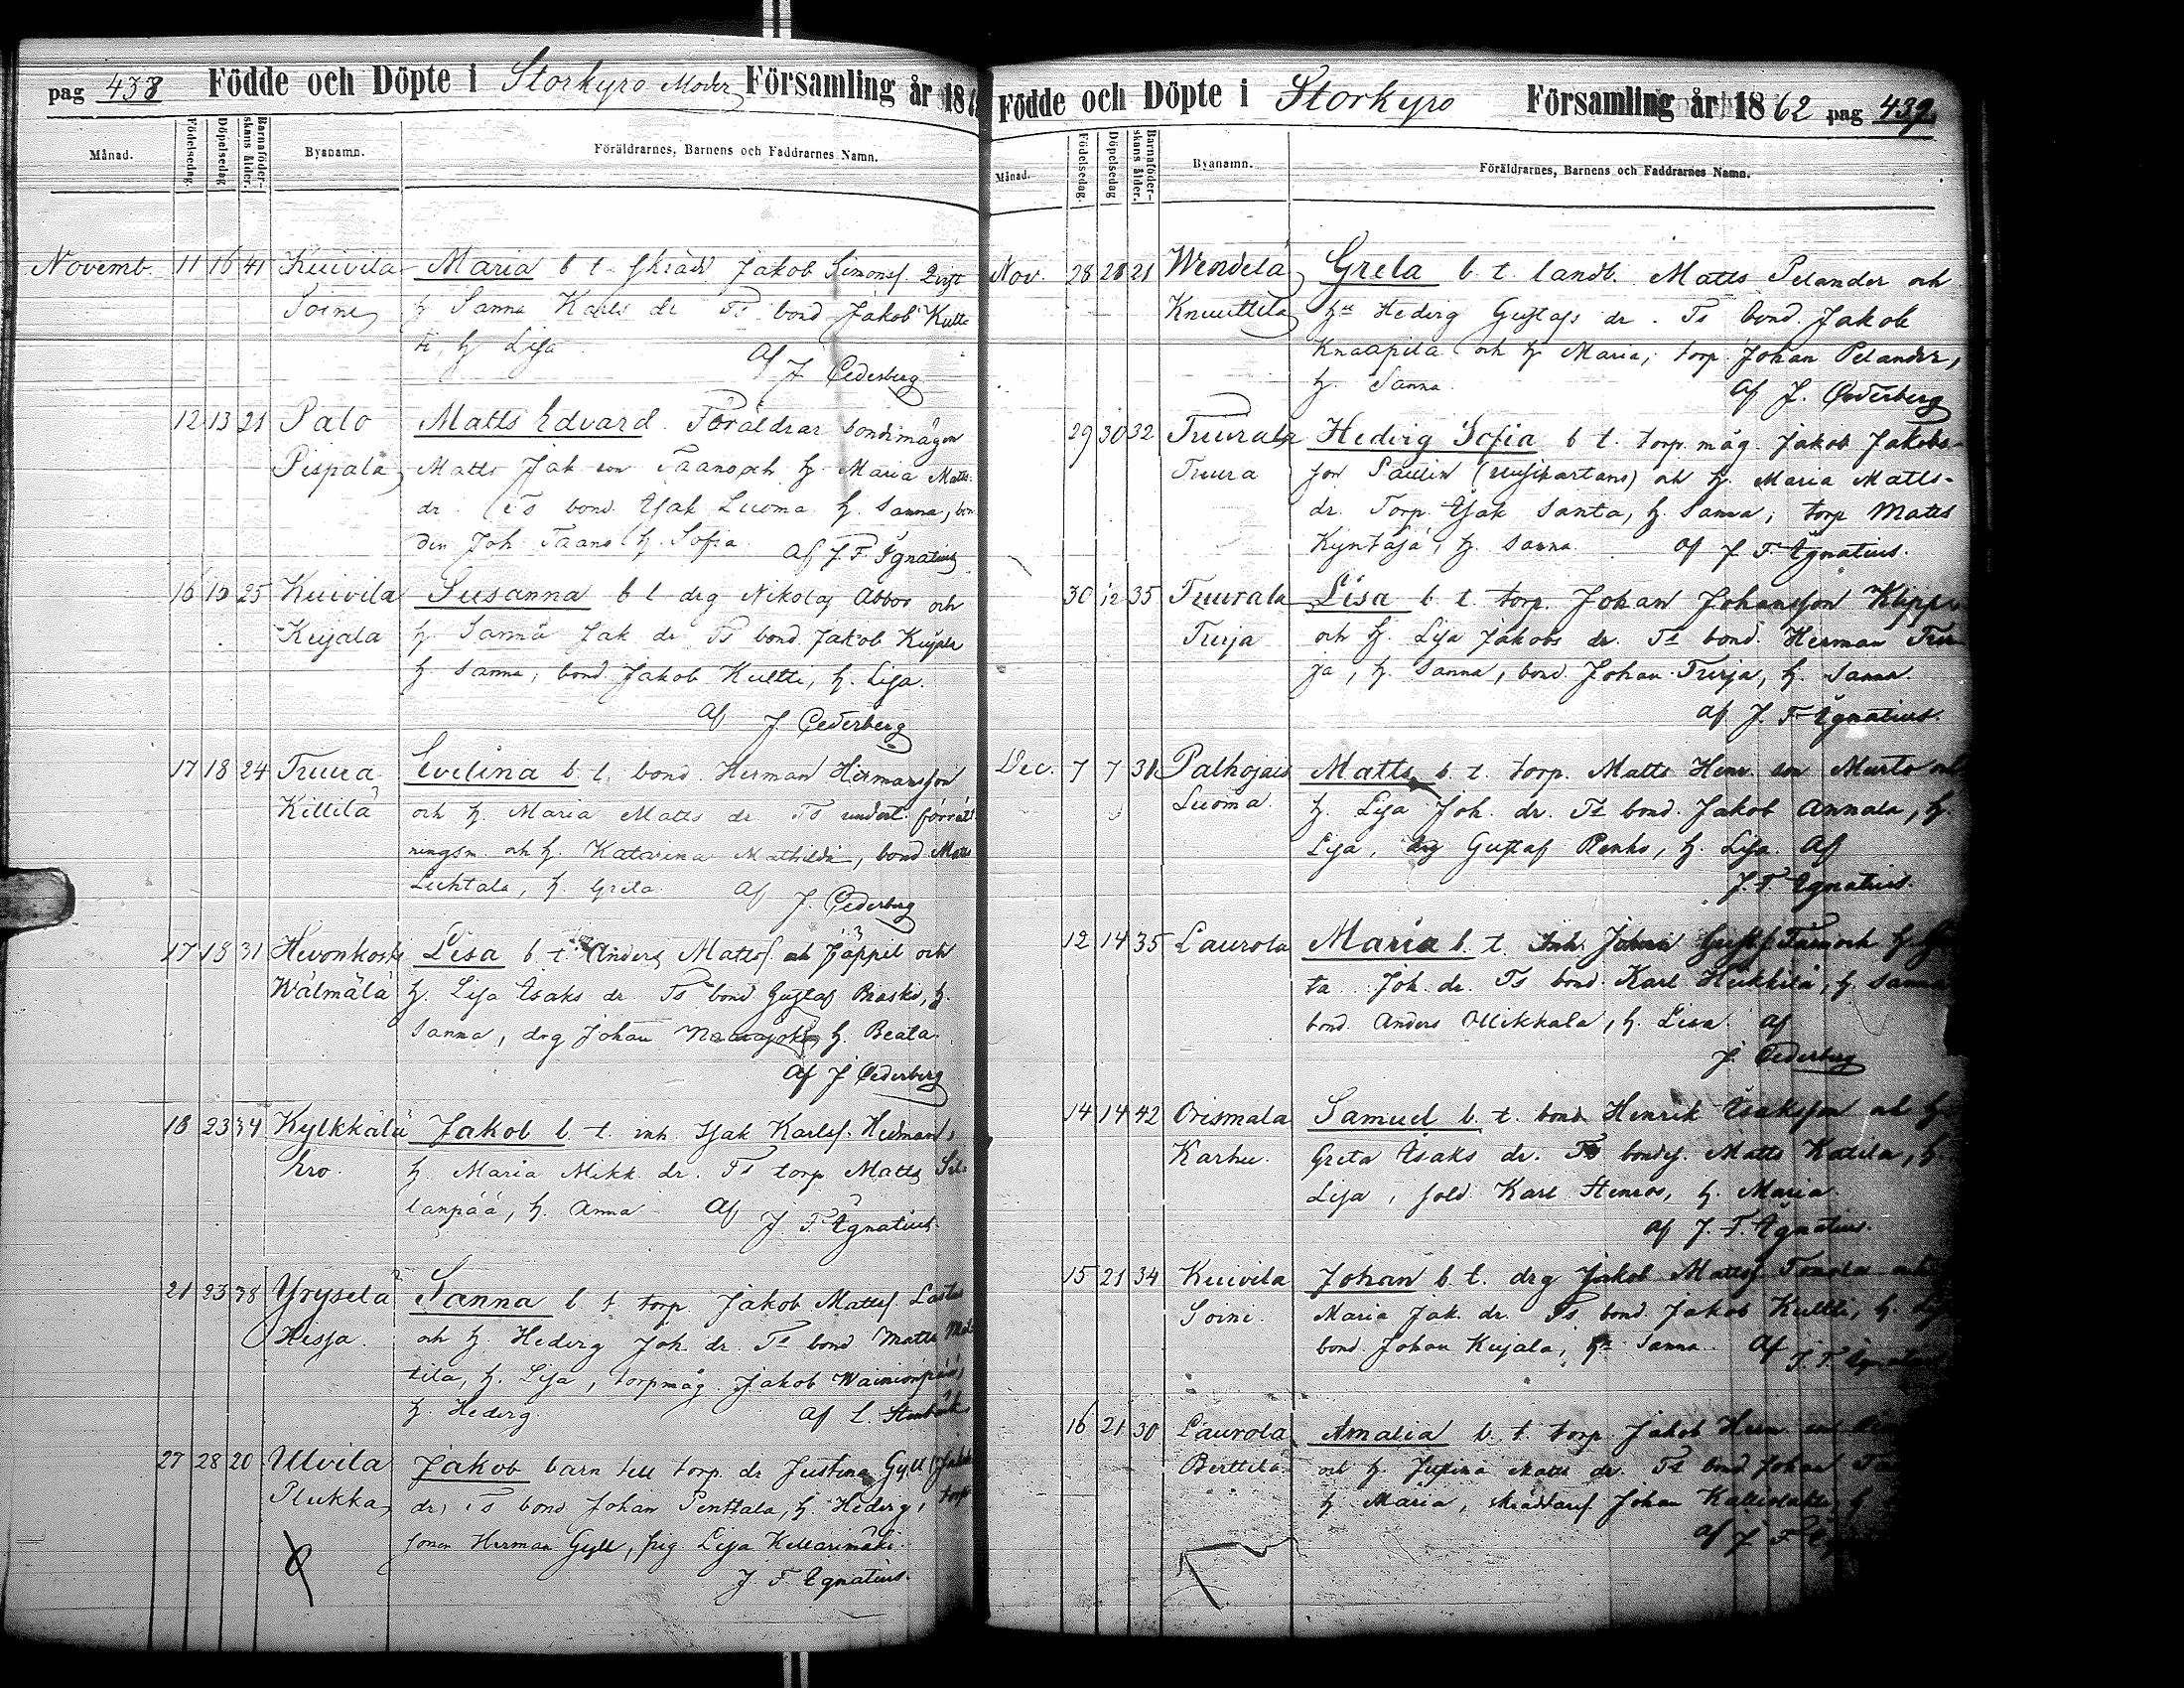 pag 438 Födde och Döpte i Storkyro Moder Församling år 186
Månad. Födelsedag. Döpelsedag Barnaföder-skans ålder. Byanamn. Föräldrarnes, Barnens och Faddrarnes Namn.
Novemb. 11 16 41 Kuivila Maria b t. Jakob Simonsf.
Soini hj Sanna Karls dr Ts bond Jakob Kultti
hj Lisa
Af J Cederberg
12 13 21 Palo Matts Edvard. Föräldrar bondemågen
Pispala Matts Jak son Taans och hj Maria Matts
dr. Ts bond. Isak Luoma hj. Sanna, bon
den Joh Taans hj. Sofia. Af J. F. Ignatius
16 16 25 Kuivila Susanna b t drg Nikolaj Abbor och
Kujala hj Sanna Jak dr Ts bond Jakob Kujala
hj Sanna, bond Jakob Kultti, hj. Lisa.
Af J. Cederberg
17 18 24 Tuura Evelina b. t. bond. Herman Hermansson
Killilä och hj. Maria Matts dr Ts undert. förrätt
ningsm. och hj. Katarina Mathilda, bond Matts
Luhtala, hj. Greta. Af J. Cederberg
17 18 31 Hevonkoski Lisa b. t. Anders Mattsf. Jäppil och
Wälmälä hj. Lisa Isaks dr. Ts bond Gustaf Raski, hj.
Sanna, drg Johan hj. Beata.
Af J Cederberg
18 23 34 Kylkkälä Jakob b. t. inh. Isak Karlsf. Hedman,
hj. Maria Mikk. dr. Ts torp Matts Sil-
lanpää, hj. Anna Af J. F. Ignatius.
21 23 38 Yryselä Sanna b t torp. Jakob Mattsf.
Hissa. och hj. Hedvig Joh dr. Ts bond. Matts
tila, hj. Lisa, torpmåg. Jakob Wainionpää,
hj. Hedvig. Af L. Stenbäck
27 28 20 Ulvila Jakob barn till torp. dr Justina Gyll
Plukka dr, Ts bond Johan Penttala, hj. Hedvig, torp
sonen Herman Gyll, pig Lisa Kellarimäki.
J F Ignatius.
Födde och Döpte i Storkyro Församling år 1862 pag 439.
Månad. Födelsedag. Döpelsedag Barnaföder-skans ålder. Byanamn. Föräldrarnes, Barnens och Faddrarnes Namn.
Nov. 28 28 21 Wendelä Greta b. t. landb. Matts Pelander och
Knuuttila hu Hedvig Gustafs dr. Ts bond. Jakob
Knaapila och hj Maria, torp. Johan Pelander,
hj. Sanna. Af J. Cederberg
29 30 32 Tuurala Hedvig Sofia b t. torp. måg. Jakob Jakobs-
Tuura son Paulin och hj. Maria Matts-
dr. Torp. Isak Santa, hj. Sanna, torp Matts
Kyntäjä, hj. Sanna. Af J. F. Ignatius.
30 12 35 Tuurala Lisa b. t. torp. Johan Johansson
Turja och hj. Lisa Jakobs dr. Ts bond. Herman Tur-
ja, hj. Sanna, bond Johan Turja, hj. Sanna.
Af J. F. Ignatius.
Dec. 7 7 31 Palhojais Matts b. t. torp. Matts Henr. son Murto och
Luoma. hj. Lisa Joh. dr. Ts bond. Jakob Annala, hj.
Lisa, drg Gustaf Renko, hj. Lisa. Af
J. F. Ignatius.
12 14 35 Laurola Maria b. t. Inh. Johan Gustf. och hj.
ta Joh. dr. Ts bond. Karl Heikkilä, hj Sanna
bond. Anders Ollikkala, hj. Lisa. af
J. Cederberg
14 14 42 Orismala Samuel b. t. bond Henrik Isaksson och hj
Karhu. Greta Isaks dr. Ts bondes. Matts Katila, hj.
Lisa, sold. Karl Stenros, hj. Maria.
af J. F. Ignatius.
15 21 34 Kuivila Johan b. t. drg Jakob Mattsf.
Soini. Maria Jak. dr. Ts bond. Jakob Kultti, hj.
bond. Johan Kujala, hu Sanna. Af J. F. Ignatius
16 21 30 Laurola Amalia b. t. torp. Jakob Henr. son
Berttila och hj. Matts dr. Ts bond Johan
hj Maria, Johan
af J F